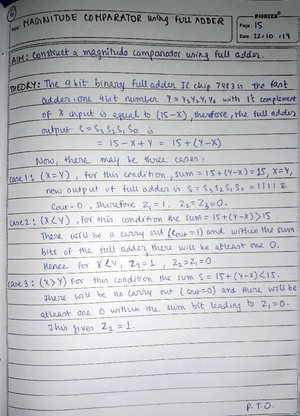 MAGNITUDE COMPARATOR using FULL ADDER
PIONEER
Page: 15
Date: 22.10.19
AIM: Construct a magnitude comparator using full adder.
THEORY: The 4 bit binary full adder IC chip 7483 is the fast
adder. One 4bit number Y = Y₃Y₂Y₁Y₀ with 1's complement
of X input is equal to (15-X), therefore, the full adder
output S = S₃ S₂ S₁ S₀ is
= 15 - X + Y = 15 + (Y-X)
Now, there may be three cases:
Case 1: (X=Y), for this condition, sum = 15 + (Y-X) = 15, X=Y,
now output of full adder is S = S₃ S₂ S₁ S₀ = 1111 &
Cout = 0. Therefore Z₁ = 1, Z₂ = Z₃ = 0.
Case 2: (X<Y), for this condition the sum = 15 + (Y-X) >15
There will be a carry out (Cout = 1) and within the sum
bits of the full adder there will be atleast one 0.
Hence for X<Y, Z₃ = 1, Z₂ = Z₁ = 0.
Case 3: (X>Y) for this condition the sum S = 15 + (Y-X) <15.
There will be no carry out (Cout = 0) and there will be
atleast one 0 within the sum bit leading to Z₁ = 0.
This gives Z₂ = 1.
P.T.O.